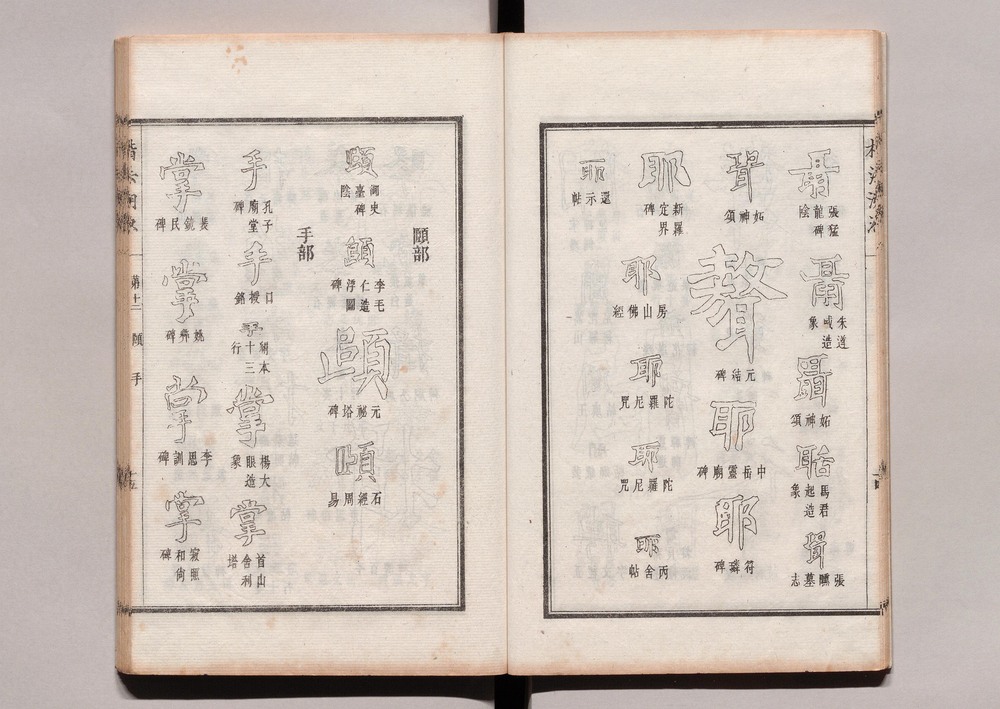 張猛龍碑陰
朱道威造象
妬神頌
馬君起造象
張曛墓志
妬神頌
聱
元結碑
耶
中岳靈廟碑
耶
符璘碑
耶
新羅定界碑
耶
房山佛經
耶
陀羅尼咒
耶
陀羅尼咒
耶
丙舍帖
耶
還示帖
𦣝部
頤
御史臺碑陰
頤
李毛仁造浮圖碑
頤
元秘塔碑
頤
石經周易
手部
手
孔子廟堂碑
手
口授銘
手
本十三行
掌
楊大眼造象
掌
首山舍利塔
掌
裴鏡民碑
掌
姚彝碑
掌
李思訓碑
掌
寂照和尚碑
楷法溯源
第十二 頤 手